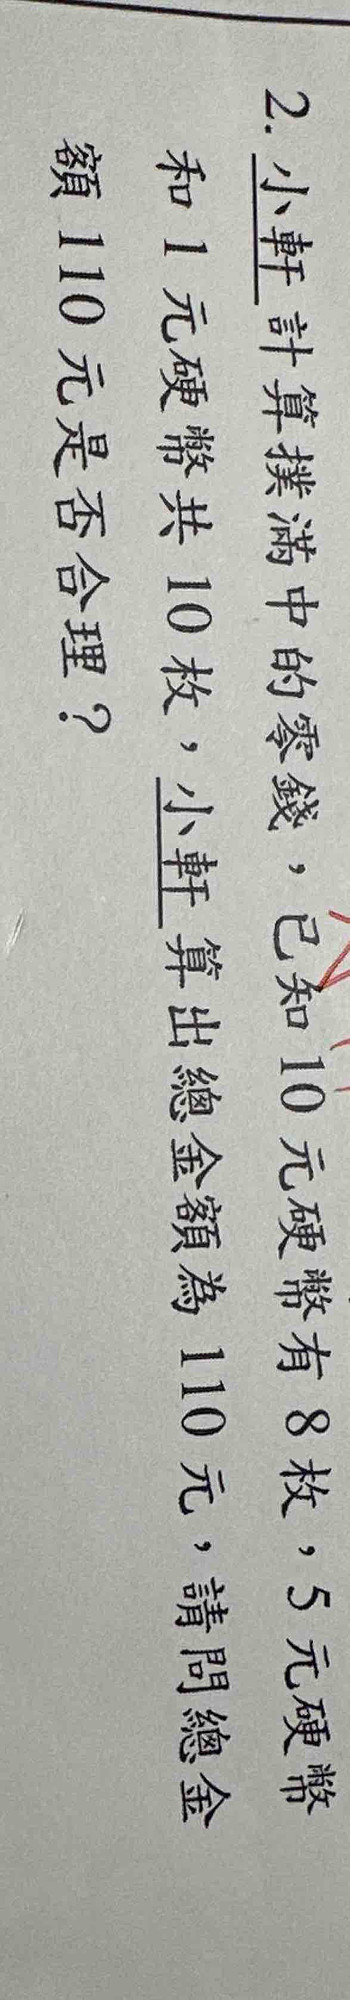 2. 小軒計算撲滿中的零錢，已知10元硬幣有8枚，5元硬幣
和1元硬幣共10枚，小軒算出總金額為110元，請問總金
額110元是否合理？